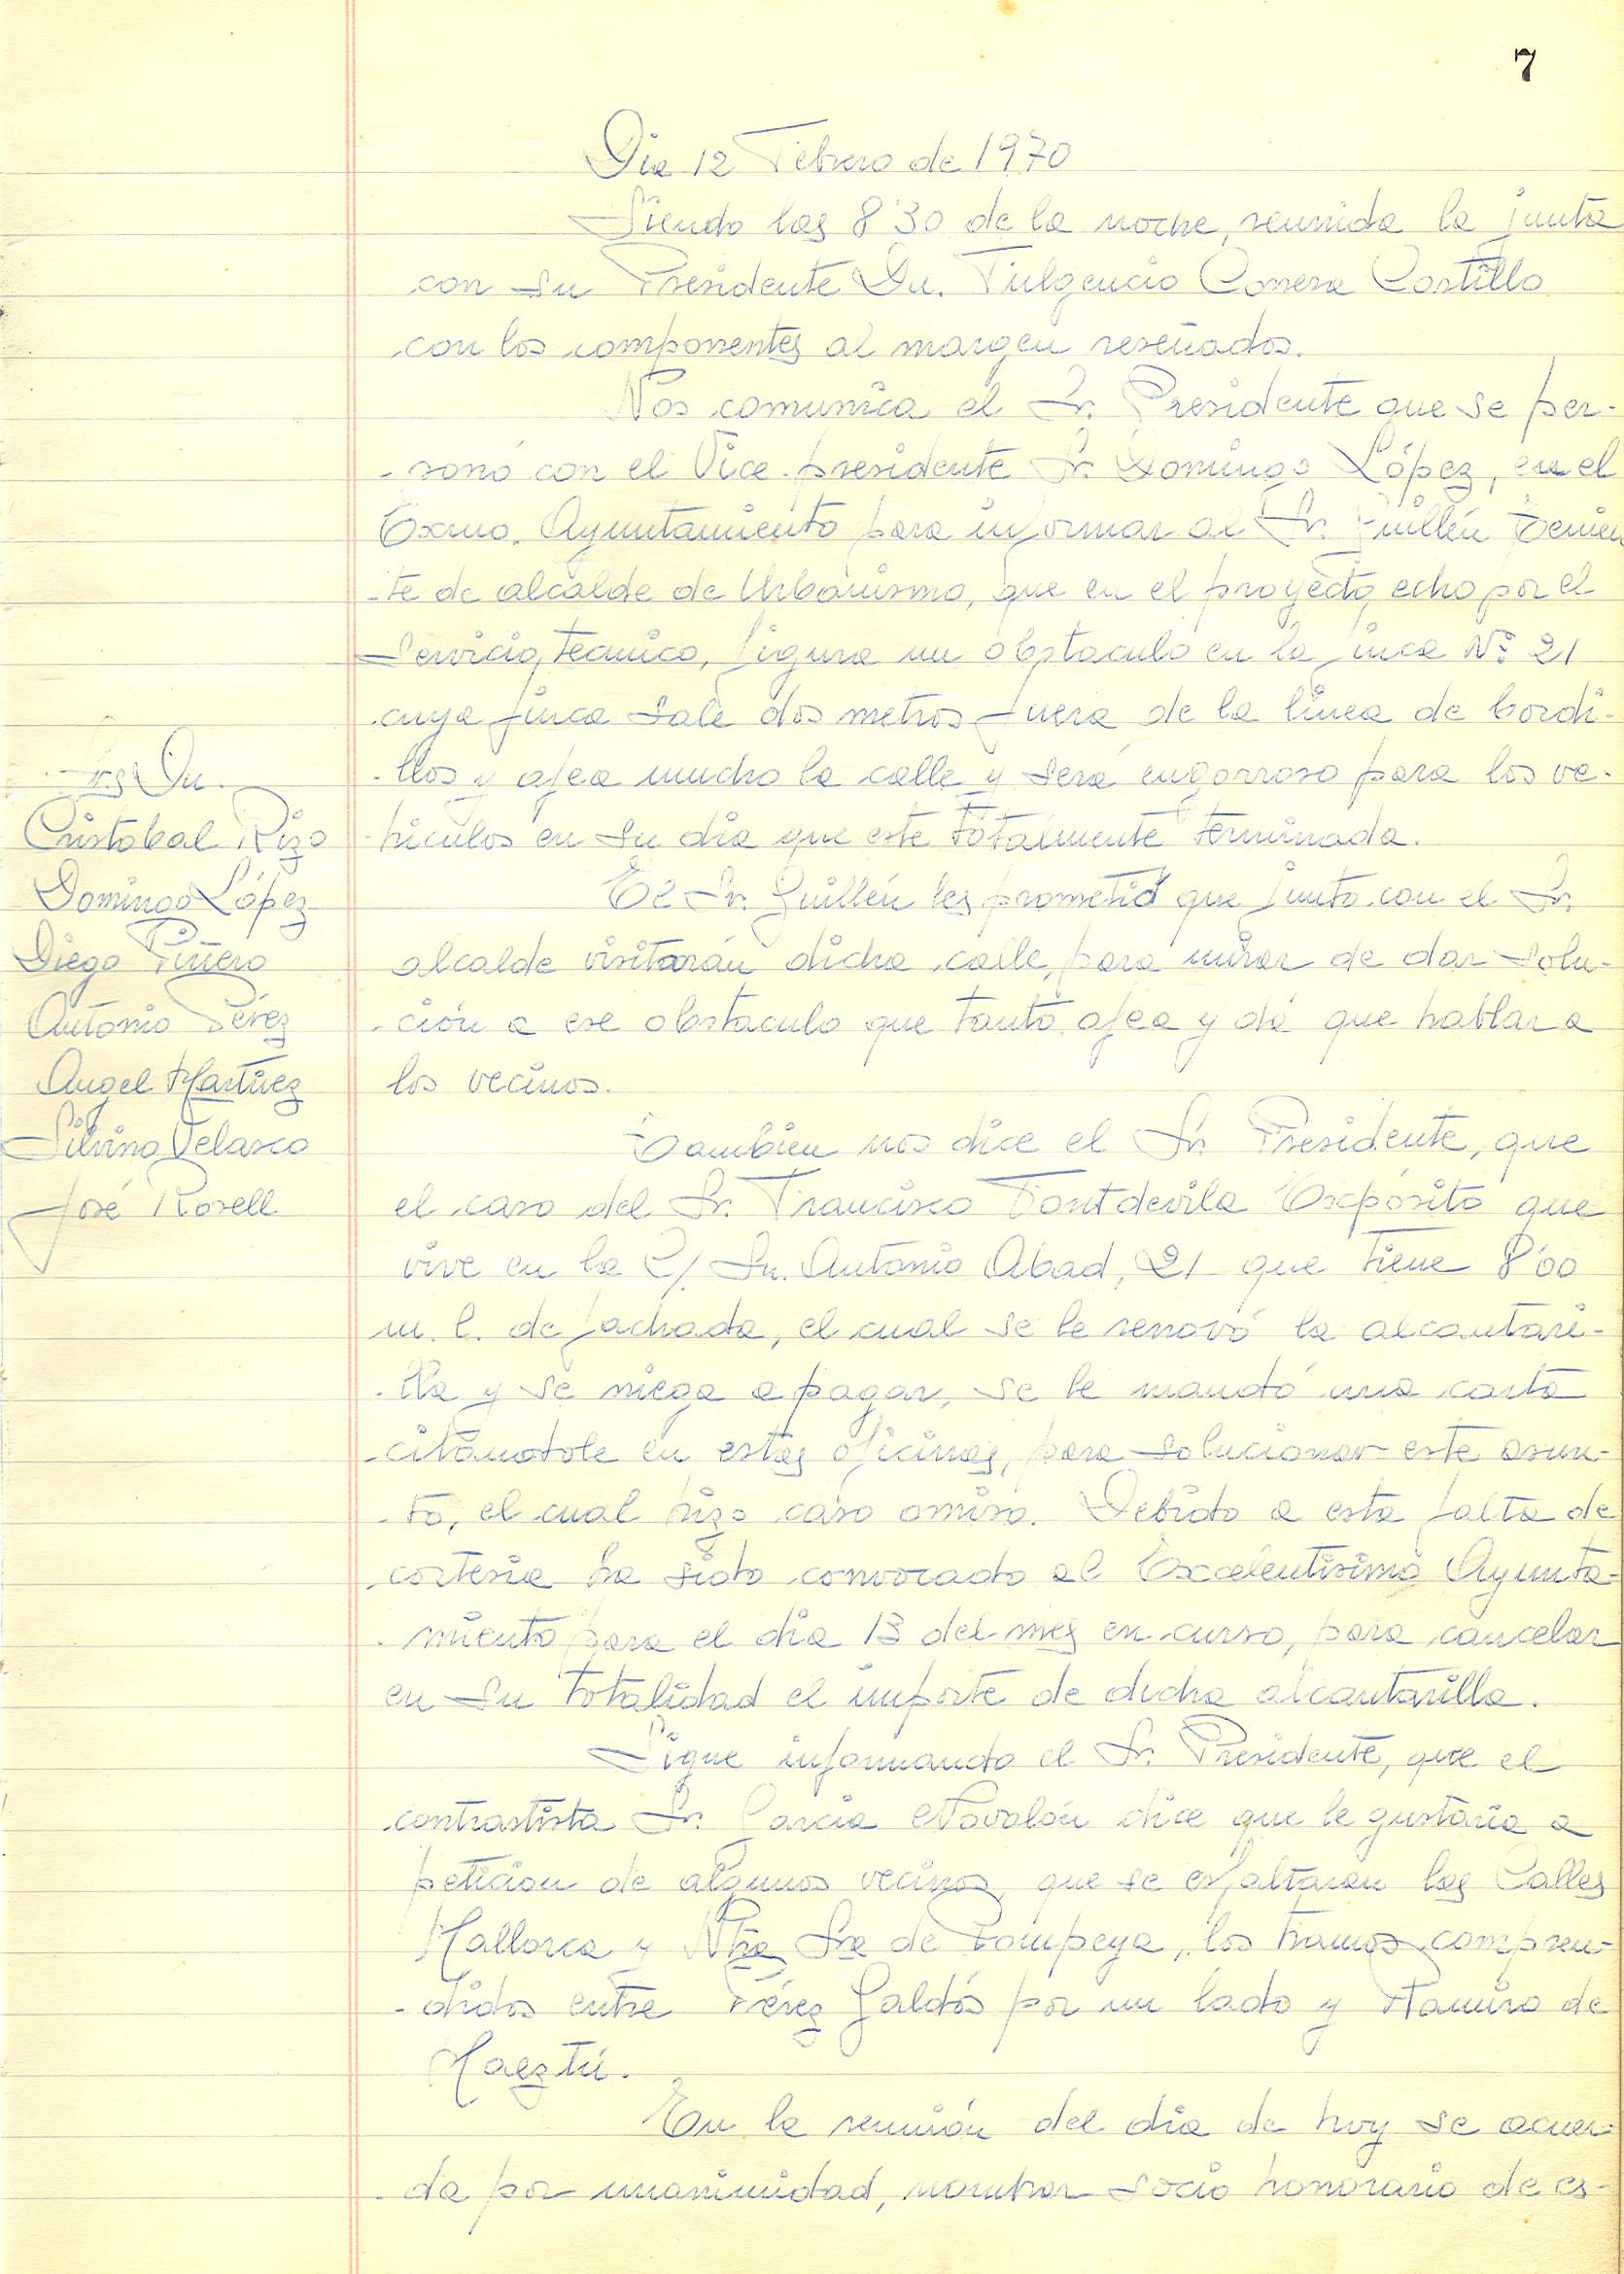 7
Dia 12 Febrero de 1970
Siendo las 8'30 de la noche, reunida la junta
con su Presidente Dn. Fulgencio Conesa Castillo
con los componentes al margen reseñados.
Nos comunica el Sr. Presidente que se per-
-sonó con el Vice-presidente Sr. Domingo López, en el
Exmo. Ayuntamiento para informar al Sr. Guillén Tenien
-te de alcalde de Urbanismo, que en el proyecto echo por el
Servicio, tecnico, figura un obstaculo en la finca Nº 21
cuya finca sale dos metros fuera de la linea de bordi-
-llos y afea mucho la calle y será engorroso para los ve-
-hiculos en su dia que este totalmente terminada.
El Sr. Guillén les prometió que junto con el Sr.
alcalde visitarán dicha calle, para mirar de dar solu-
-ción a ese obstaculo que tanto afea y dá que hablar a
los vecinos.
Tambien nos dice el Sr. Presidente, que
el caso del Sr. Francisco Fontdevila Expósito que
vive en la C/. Sn. Antonio Abad, 21 que tiene 8'00
m. l. de fachada, el cual se le renovó la alcantari-
-lla y se niega a pagar, se le mandó una carta
citandole en estas oficinas, para solucionar este asun-
-to, el cual hizo caso omiso. Debido a esta falta de
cortesia ha sido convocado al Excelentisimo Ayunta-
-miento para el dia 13 del mes en curso, para cancelar
en su totalidad el importe de dicha alcantarilla.
Sigue informando el Sr. Presidente, que el
contrastista Sr. Garcia Navalón dice que le gustaria a
peticion de algunos vecinos, que se esfaltaran las Calles
Mallorca y Ntra Sra de Pompeya, los tramos compren-
-didos entre Pérez Galdós por un lado y Ramiro de
Maeztú.
En la reunión del dia de hoy se acuer-
-da por unanimidad, nombrar socio honorario de es-
Srs Dn.
Cristobal Rizo
Domingo López
Diego Piñero
Antonio Pérez
Angel Martinez
Silvino Velasco
José Rosell